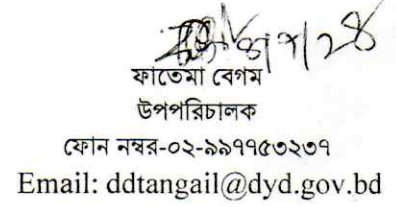 ফাতেমা বেগম
উপপরিচালক
ফোন নম্বর-০২-৯৯৭৭৫৩২৩৭
Email: ddtangail@dyd.gov.bd